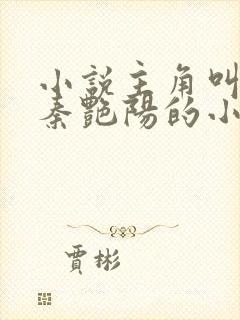 小説主角叫
秦艷陽的小
賈彬